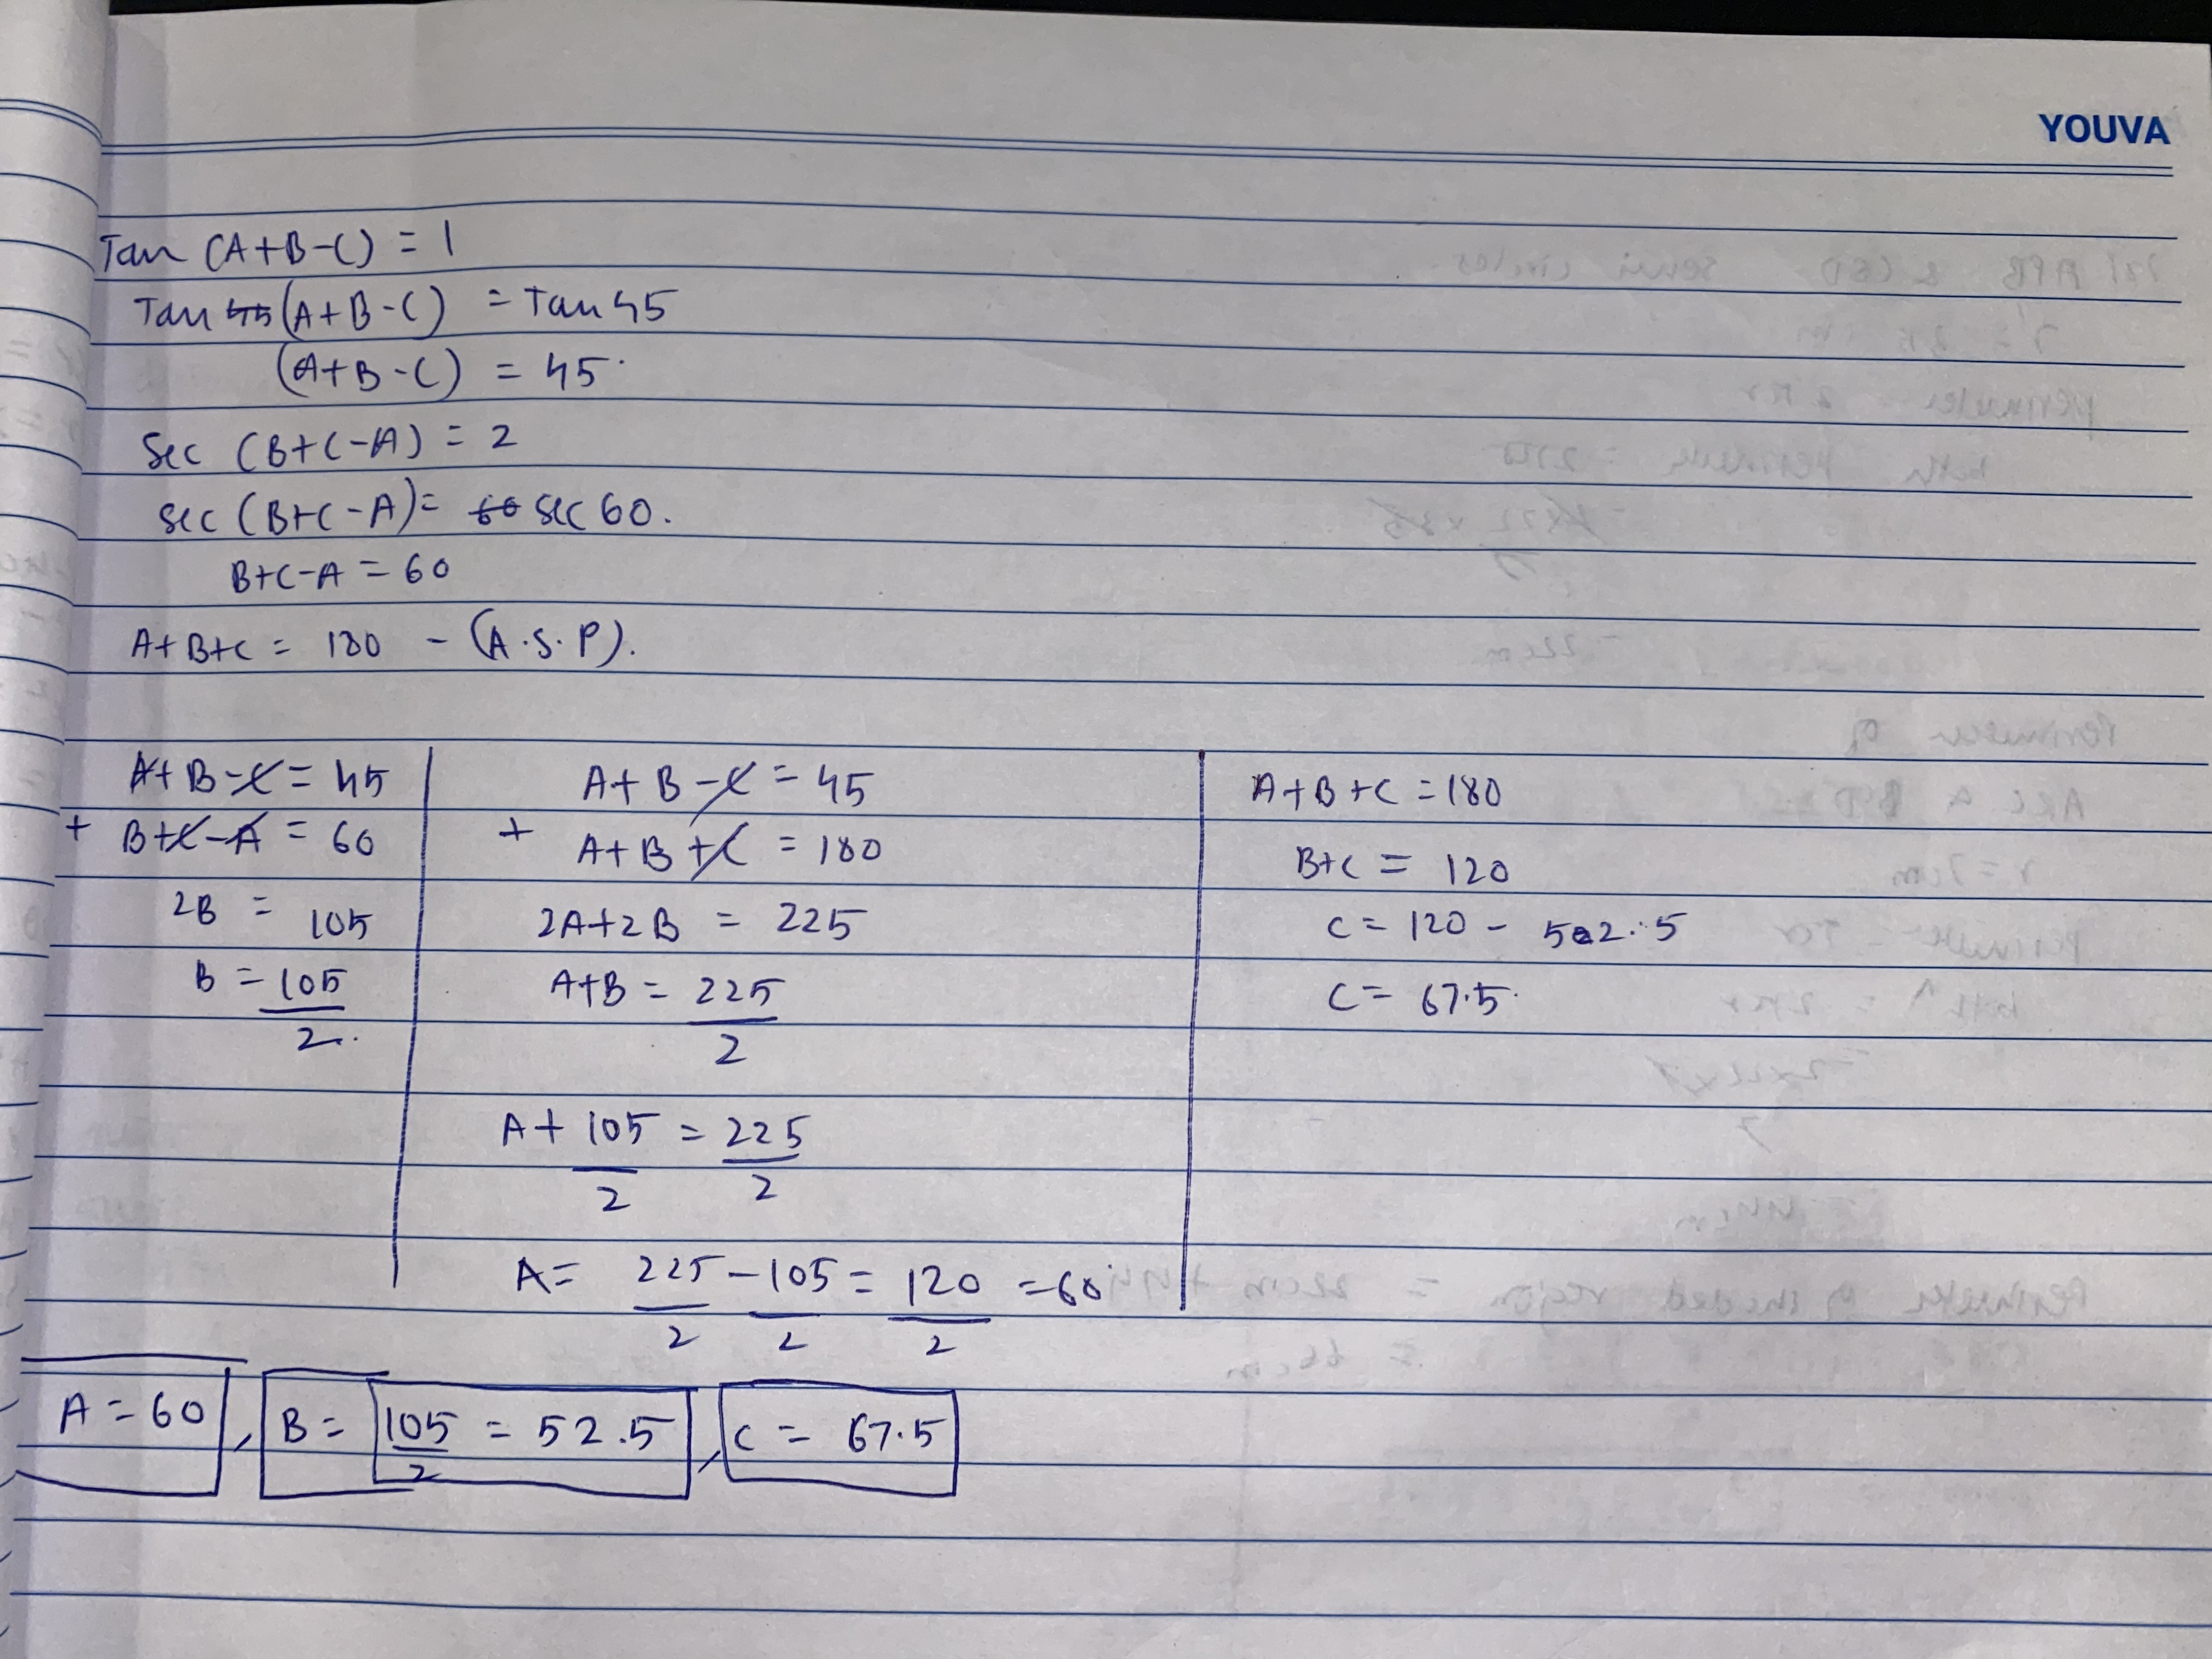 YOUVA
Tan (A+B-C) = 1
Tan (A+B-C) = Tan 45
(A+B-C) = 45
Sec (B+C-A) = 2
Sec (B+C-A) = Sec 60.
B+C-A = 60
A+B+C = 180 - (A.S.P).
A+B-C = 45
+ B+C-A = 60
2B = 105
B = 105/2
A+B-C = 45
+ A+B+C = 180
2A+2B = 225
A+B = 225/2
A + 105/2 = 225/2
A = 225/2 - 105/2 = 120/2 = 60
A+B+C = 180
B+C = 120
C = 120 - 52.5
C = 67.5
A = 60, B = 105/2 = 52.5, C = 67.5